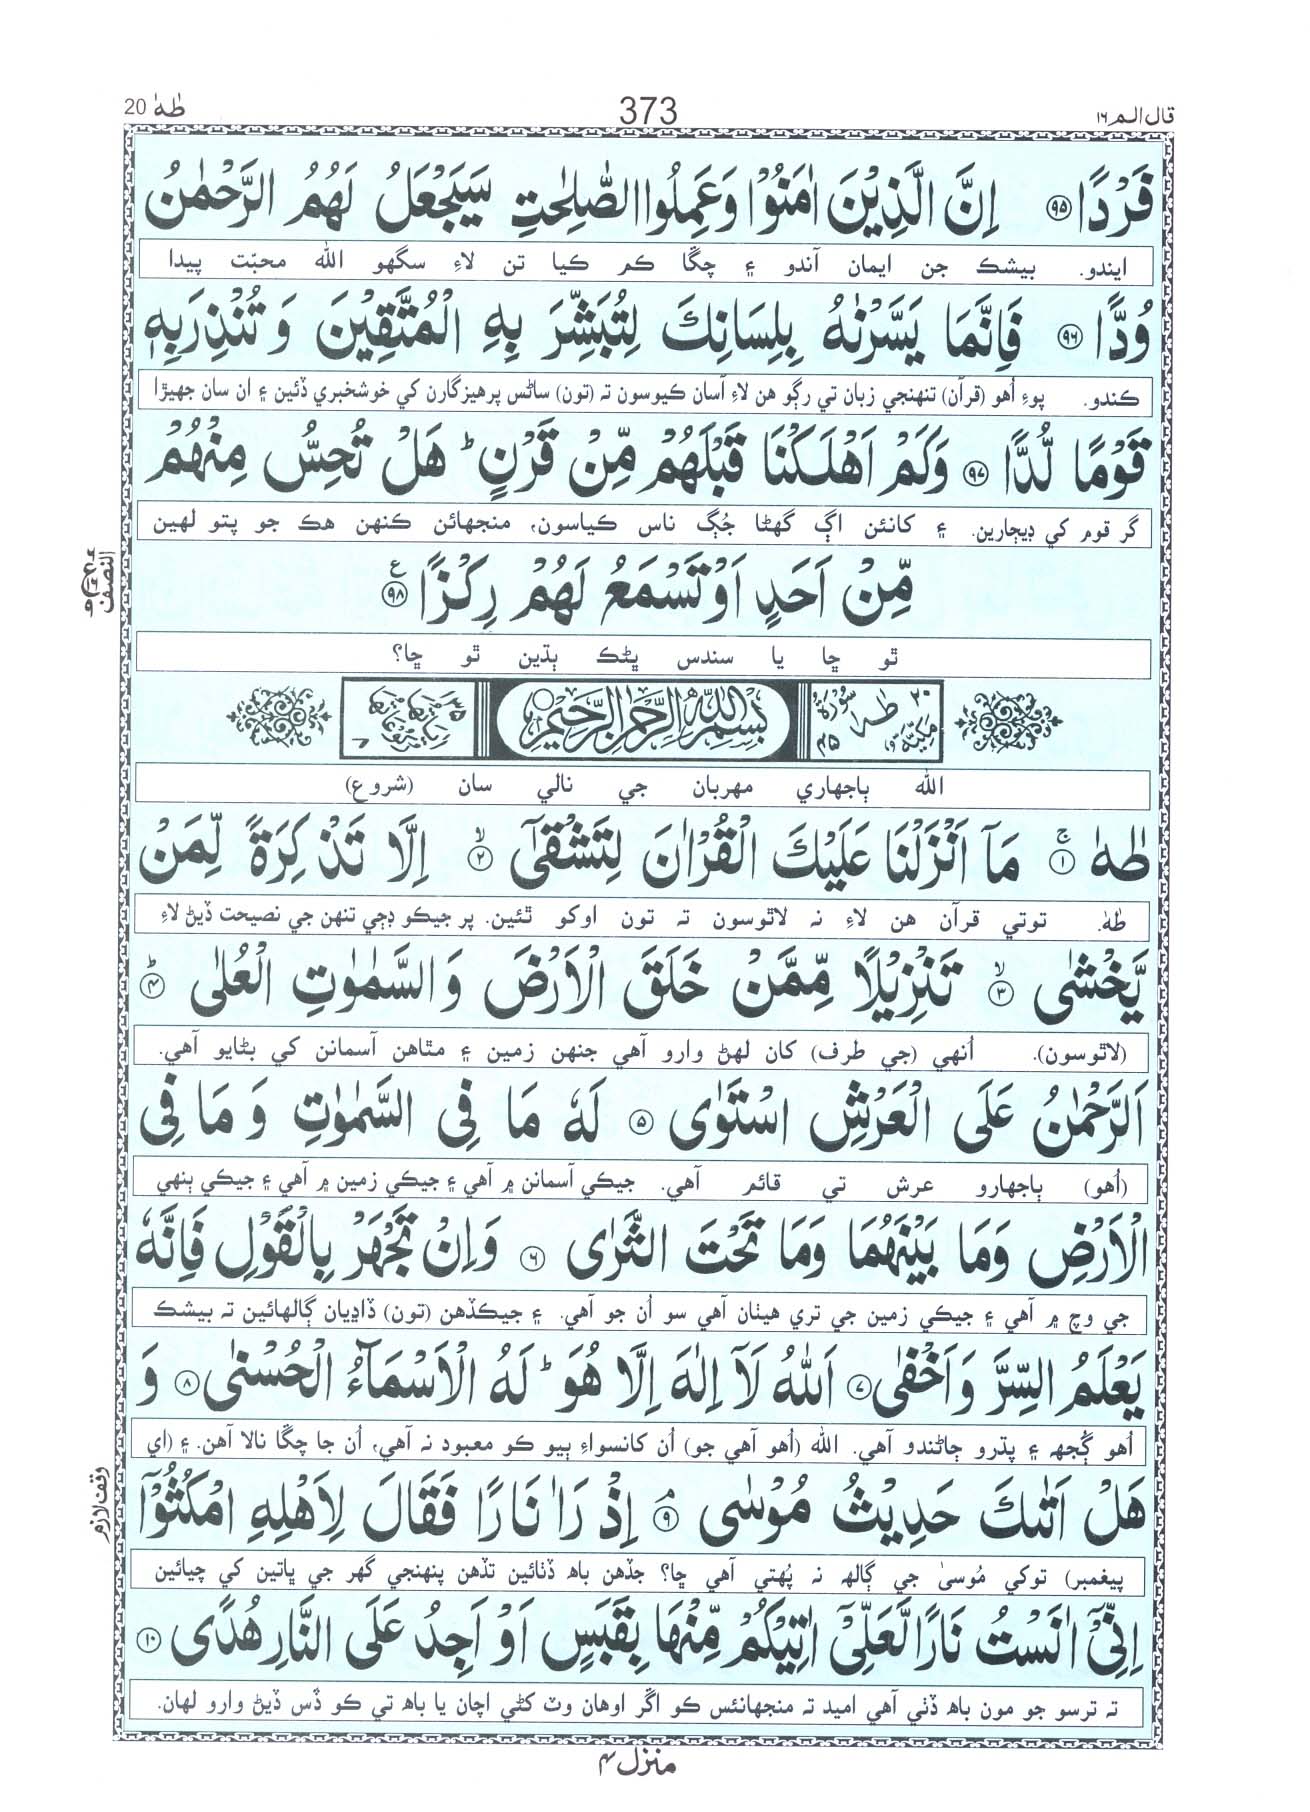 قال الم ١٦
373
طٰهٰ 20
فَرْدًا ۹۵ اِنَّ الَّذِيْنَ اٰمَنُوْا وَعَمِلُوا الصّٰلِحٰتِ سَيَجْعَلُ لَهُمُ الرَّحْمٰنُ
ايندو. بيشڪ جن ايمان آندو ۽ چڱا ڪم ڪيا تن لاءِ سگهو الله محبّت پيدا
وُدًّا ۹۶ فَاِنَّمَا يَسَّرْنٰهُ بِلِسَانِكَ لِتُبَشِّرَ بِهِ الْمُتَّقِيْنَ وَ تُنْذِرَ بِهٖ
ڪندو. پوءِ اُهو (قرآن) تنهنجي زبان تي رڳو هن لاءِ آسان ڪيوسون ته (تون) ساڻس پرهيزگارن کي خوشخبري ڏئين ۽ ان سان جهيڙا
قَوْمًا لُّدًّا ۹۷ وَكَمْ اَهْلَكْنَا قَبْلَهُمْ مِّنْ قَرْنٍ ؕ هَلْ تُحِسُّ مِنْهُمْ
گر قوم کي ڊيڄارين. ۽ کانئن اڳ گهڻا جُڳ ناس ڪياسون، منجهائن ڪنهن هڪ جو پتو لهين
مِّنْ اَحَدٍ اَوْ تَسْمَعُ لَهُمْ رِكْزًا ۹۸ ع
النصف
ٿو ڇا يا سندس ڀڻڪ ٻڌين ٿو ڇا؟
٢٠ سُوْرَةُ طٰهٰ مَكِّيَّةٌ ٤٥ بِسْمِ اللّٰهِ الرَّحْمٰنِ الرَّحِيْمِ اٰيَاتُهَا ١٣٥ رُكُوْعَاتُهَا ٨
الله ٻاجهاري مهربان جي نالي سان (شروع)
طٰهٰ ۱ ج مَآ اَنْزَلْنَا عَلَيْكَ الْقُرْاٰنَ لِتَشْقٰٓى ۲ لا اِلَّا تَذْكِرَةً لِّمَنْ
طٰهٰ. توتي قرآن هن لاءِ نہ لاٿوسون تہ تون اوکو ٿئين. پر جيڪو ڊڄي تنهن جي نصيحت ڏيڻ لاءِ
يَّخْشٰى ۳ لا تَنْزِيْلًا مِّمَّنْ خَلَقَ الْاَرْضَ وَ السَّمٰوٰتِ الْعُلٰى ۴ ط
(لاٿوسون). اُنهي (جي طرف) کان لهڻ وارو آهي جنهن زمين ۽ مٿاهن آسمانن کي بڻايو آهي.
اَلرَّحْمٰنُ عَلَى الْعَرْشِ اسْتَوٰى ۵ لَهٗ مَا فِى السَّمٰوٰتِ وَ مَا فِى
(اُهو) ٻاجهارو عرش تي قائم آهي. جيڪي آسمانن ۾ آهي ۽ جيڪي زمين ۾ آهي ۽ جيڪي ٻنهي
الْاَرْضِ وَمَا بَيْنَهُمَا وَمَا تَحْتَ الثَّرٰى ۶ وَاِنْ تَجْهَرْ بِالْقَوْلِ فَاِنَّهٗ
جي وچ ۾ آهي ۽ جيڪي زمين جي تري هيٺان آهي سو اُن جو آهي. ۽ جيڪڏهن (تون) ڏاڍيان ڳالهائين تہ بيشڪ
يَعْلَمُ السِّرَّ وَاَخْفٰى ۷ اَللّٰهُ لَآ اِلٰهَ اِلَّا هُوَ ؕ لَهُ الْاَسْمَآءُ الْحُسْنٰى ۸ وَ
اُهو ڳجهہ ۽ پڌرو ڄاڻندو آهي. الله (اُهو آهي جو) اُن کانسواءِ ٻيو ڪو معبود نہ آهي، اُن جا چڱا نالا آهن. ۽ (اي
هَلْ اَتٰىكَ حَدِيْثُ مُوْسٰى ۹ م اِذْ رَاٰ نَارًا فَقَالَ لِاَهْلِهِ امْكُثُوْٓا
وقف لازم
پيغمبر) توکي مُوسىٰ جي ڳالهہ نہ پُهتي آهي ڇا؟ جڏهن باھ ڏٺائين تڏهن پنهنجي گهر جي ڀاتين کي چيائين
اِنِّىْٓ اٰنَسْتُ نَارًا لَّعَلِّىْٓ اٰتِيْكُمْ مِّنْهَا بِقَبَسٍ اَوْ اَجِدُ عَلَى النَّارِ هُدًى ۱۰
تہ ترسو جو مون باھ ڏٺي آهي اميد تہ منجهانئس ڪو اڱر اوهان وٽ کڻي اچان يا باھ تي ڪو ڏس ڏيڻ وارو لهان.
منزل ۴